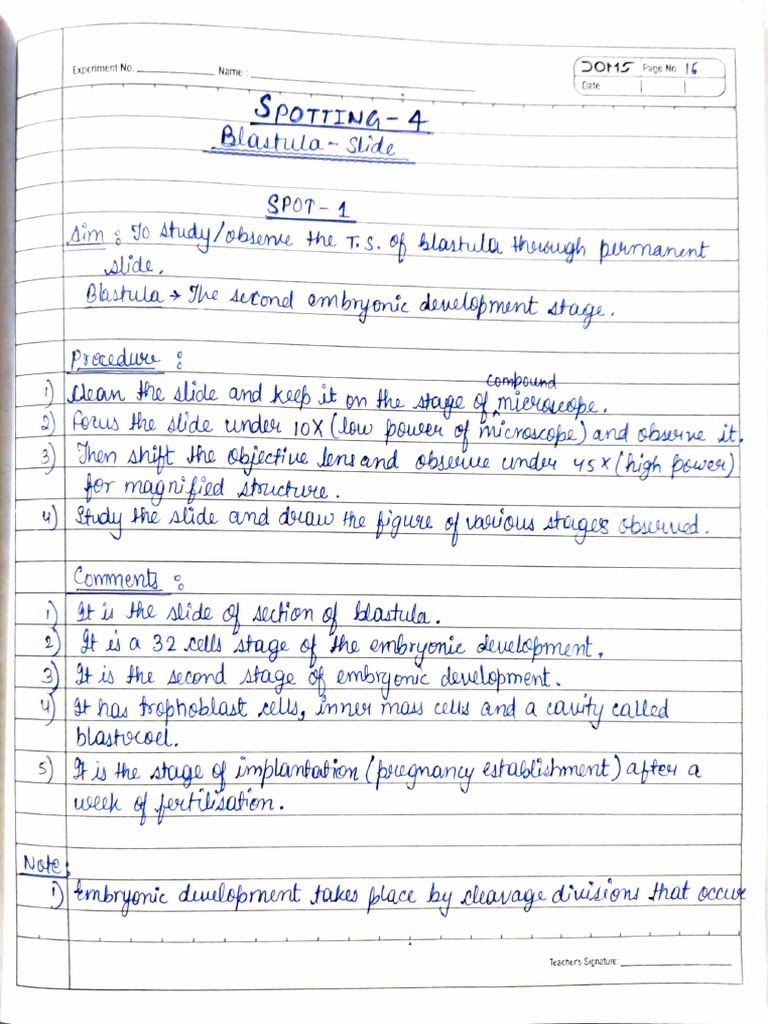 Experiment No. Name :
DOMS Page No. 16
Date
SPOTTING-4
Blastula - Slide
SPOT-1
Aim : To study/observe the T.S. of blastula through permanent
slide.
Blastula → The second embryonic development stage.
Procedure :
1) Clean the slide and keep it on the stage of compound microscope.
2) Focus the slide under 10X (low power of microscope) and observe it.
3) Then shift the objective lens and observe under 45X (high power)
for magnified structure.
4) Study the slide and draw the figure of various stages observed.
Comments :
1) It is the slide of section of blastula.
2) It is a 32 cells stage of the embryonic development.
3) It is the second stage of embryonic development.
4) It has trophoblast cells, inner mass cells and a cavity called
blastocoel.
5) It is the stage of implantation (pregnancy establishment) after a
week of fertilisation.
Note :
1) Embryonic development takes place by cleavage divisions that occur
Teacher's Signature: